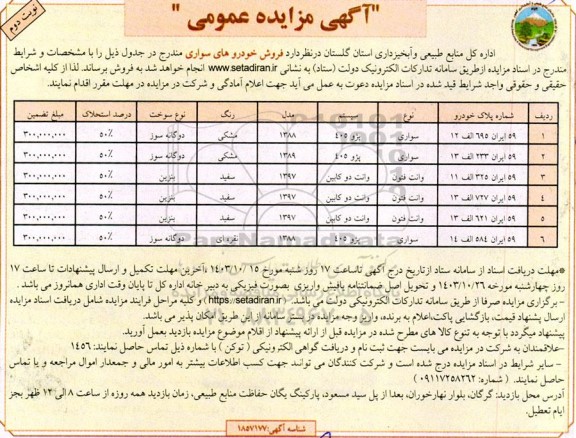 "آگهی مزایده عمومی"
نوبت دوم
اداره کل منابع طبیعی وآبخیزداری استان گلستان درنظردارد فروش خودرو های سواری مندرج در جدول ذیل را با مشخصات و شرایط
مندرج در اسناد مزایده ازطریق سامانه تدارکات الکترونیک دولت (ستاد) به نشانی www.setadiran.ir انجام خواهد شد به فروش برساند. لذا از کلیه اشخاص
حقیقی و حقوقی واجد شرایط قید شده در اسناد مزایده دعوت به عمل می آید جهت اعلام آمادگی و شرکت در مزایده در مهلت مقرر اقدام نمایند.
ردیف شماره پلاک خودرو نوع سیستم مدل رنگ نوع سوخت درصد استحلاک مبلغ تضمین
۱ ۵۹ ایران ۶۹۵ الف ۱۲ سواری پژو ۴۰۵ ۱۳۸۸ مشکی دوگانه سوز ۵۰٪ ۳۰۰,۰۰۰,۰۰۰
۲ ۵۹ ایران ۲۳۳ الف ۱۳ سواری پژو ۴۰۵ ۱۳۸۹ مشکی دوگانه سوز ۵۰٪ ۳۰۰,۰۰۰,۰۰۰
۳ ۵۹ ایران ۳۲۵ الف ۱۱ وانت فتون وانت دو کابین ۱۳۹۷ سفید بنزین ۵۰٪ ۳۰۰,۰۰۰,۰۰۰
۴ ۵۹ ایران ۷۲۷ الف ۱۳ وانت فتون وانت دو کابین ۱۳۹۷ سفید بنزین ۵۰٪ ۳۰۰,۰۰۰,۰۰۰
۵ ۵۹ ایران ۶۲۱ الف ۱۳ وانت فتون وانت دو کابین ۱۳۹۷ سفید بنزین ۵۰٪ ۳۰۰,۰۰۰,۰۰۰
۶ ۵۹ ایران ۵۸۴ الف ۱۴ سواری پژو ۴۰۵ ۱۳۸۸ نقره ای دوگانه سوز ۵۰٪ ۳۰۰,۰۰۰,۰۰۰
*مهلت دریافت اسناد از سامانه ستاد ازتاریخ درج آگهی تاساعت ۱۷ روز شنبه مورخ ۱۴۰۳/۱۰/۱۵ ،آخرین مهلت تکمیل و ارسال پیشنهادات تا ساعت ۱۷
روز چهارشنبه مورخه ۱۴۰۳/۱۰/۲۶ و تحویل اصل ضمانتنامه یافیش واریزی بصورت فیزیکی به دبیر خانه اداره کل تا پایان وقت اداری همانروز می باشد .
- برگزاری مزایده صرفا از طریق سامانه تدارکات الکترونیکی دولت می باشد. (https://setadiran.ir) و کلیه مراحل فرایند مزایده شامل دریافت اسناد مزایده
ارسال پشنهاد قیمت، بازگشایی پاکت،اعلام به برنده، واریز وجه مزایده در بستر سامانه از این طریق امکان پذیر می باشد.
پیشنهاد میگردد با توجه به تنوع کالا های مطرح شده در مزایده قبل از ارائه پیشنهاد از اقلام موضوع مزایده بازدید بعمل آورید.
-علاقمندان به شرکت در مزایده می بایست جهت ثبت نام و دریافت گواهی الکترونیکی ( توکن ) با شماره ذیل تماس حاصل نمایند: ۱۴۵۶
- سایر شرایط در اسناد مزایده درج شده است و شرکت کنندگان می توانند جهت کسب اطلاعات بیشتر به امور مالی و جمعدار اموال مراجعه و یا تماس
حاصل نمایند. ( شماره: ۰۹۱۱۷۲۵۸۲۶۲ )
آدرس محل بازدید: گرگان، بلوار نهارخوران، بعدا از پل سید مسعود، پارکینگ یگان حفاظت منابع طبیعی، زمان بازدید همه روزه از ساعت ۸ الی ۱۳ ظهر بجز
ایام تعطیل.
شناسه آگهی: ۱۸۵۷۱۷۷